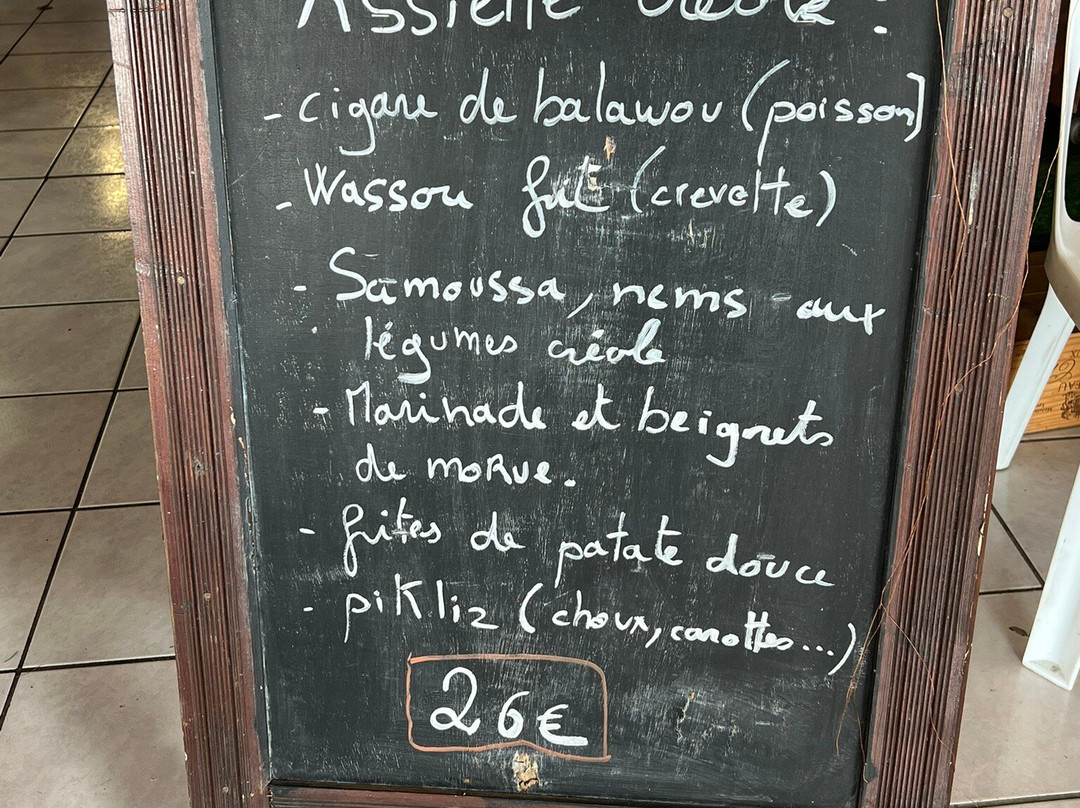 Assiette créole :
- cigare de balawou (poisson)
- Wassou frit (crevette)
- Samoussa, nems aux
légumes créole
- Marinade et beignets
de moRue.
- frites de patate douce
- piKliz (choux, carottes...)
26€